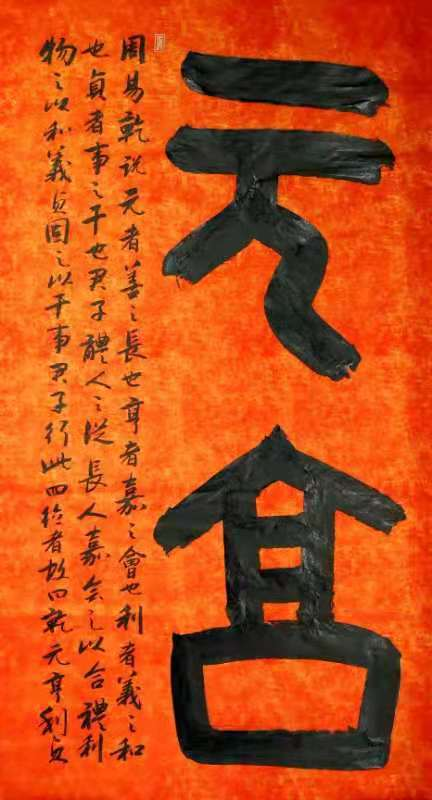 元亨
周易乾说元者善之長也亨者嘉之會也利者義之和
也貞者事之干也君子體人之從長人嘉会之以合禮利
物之以和義贞固之以干事君子行此四德者故曰乾元亨利贞